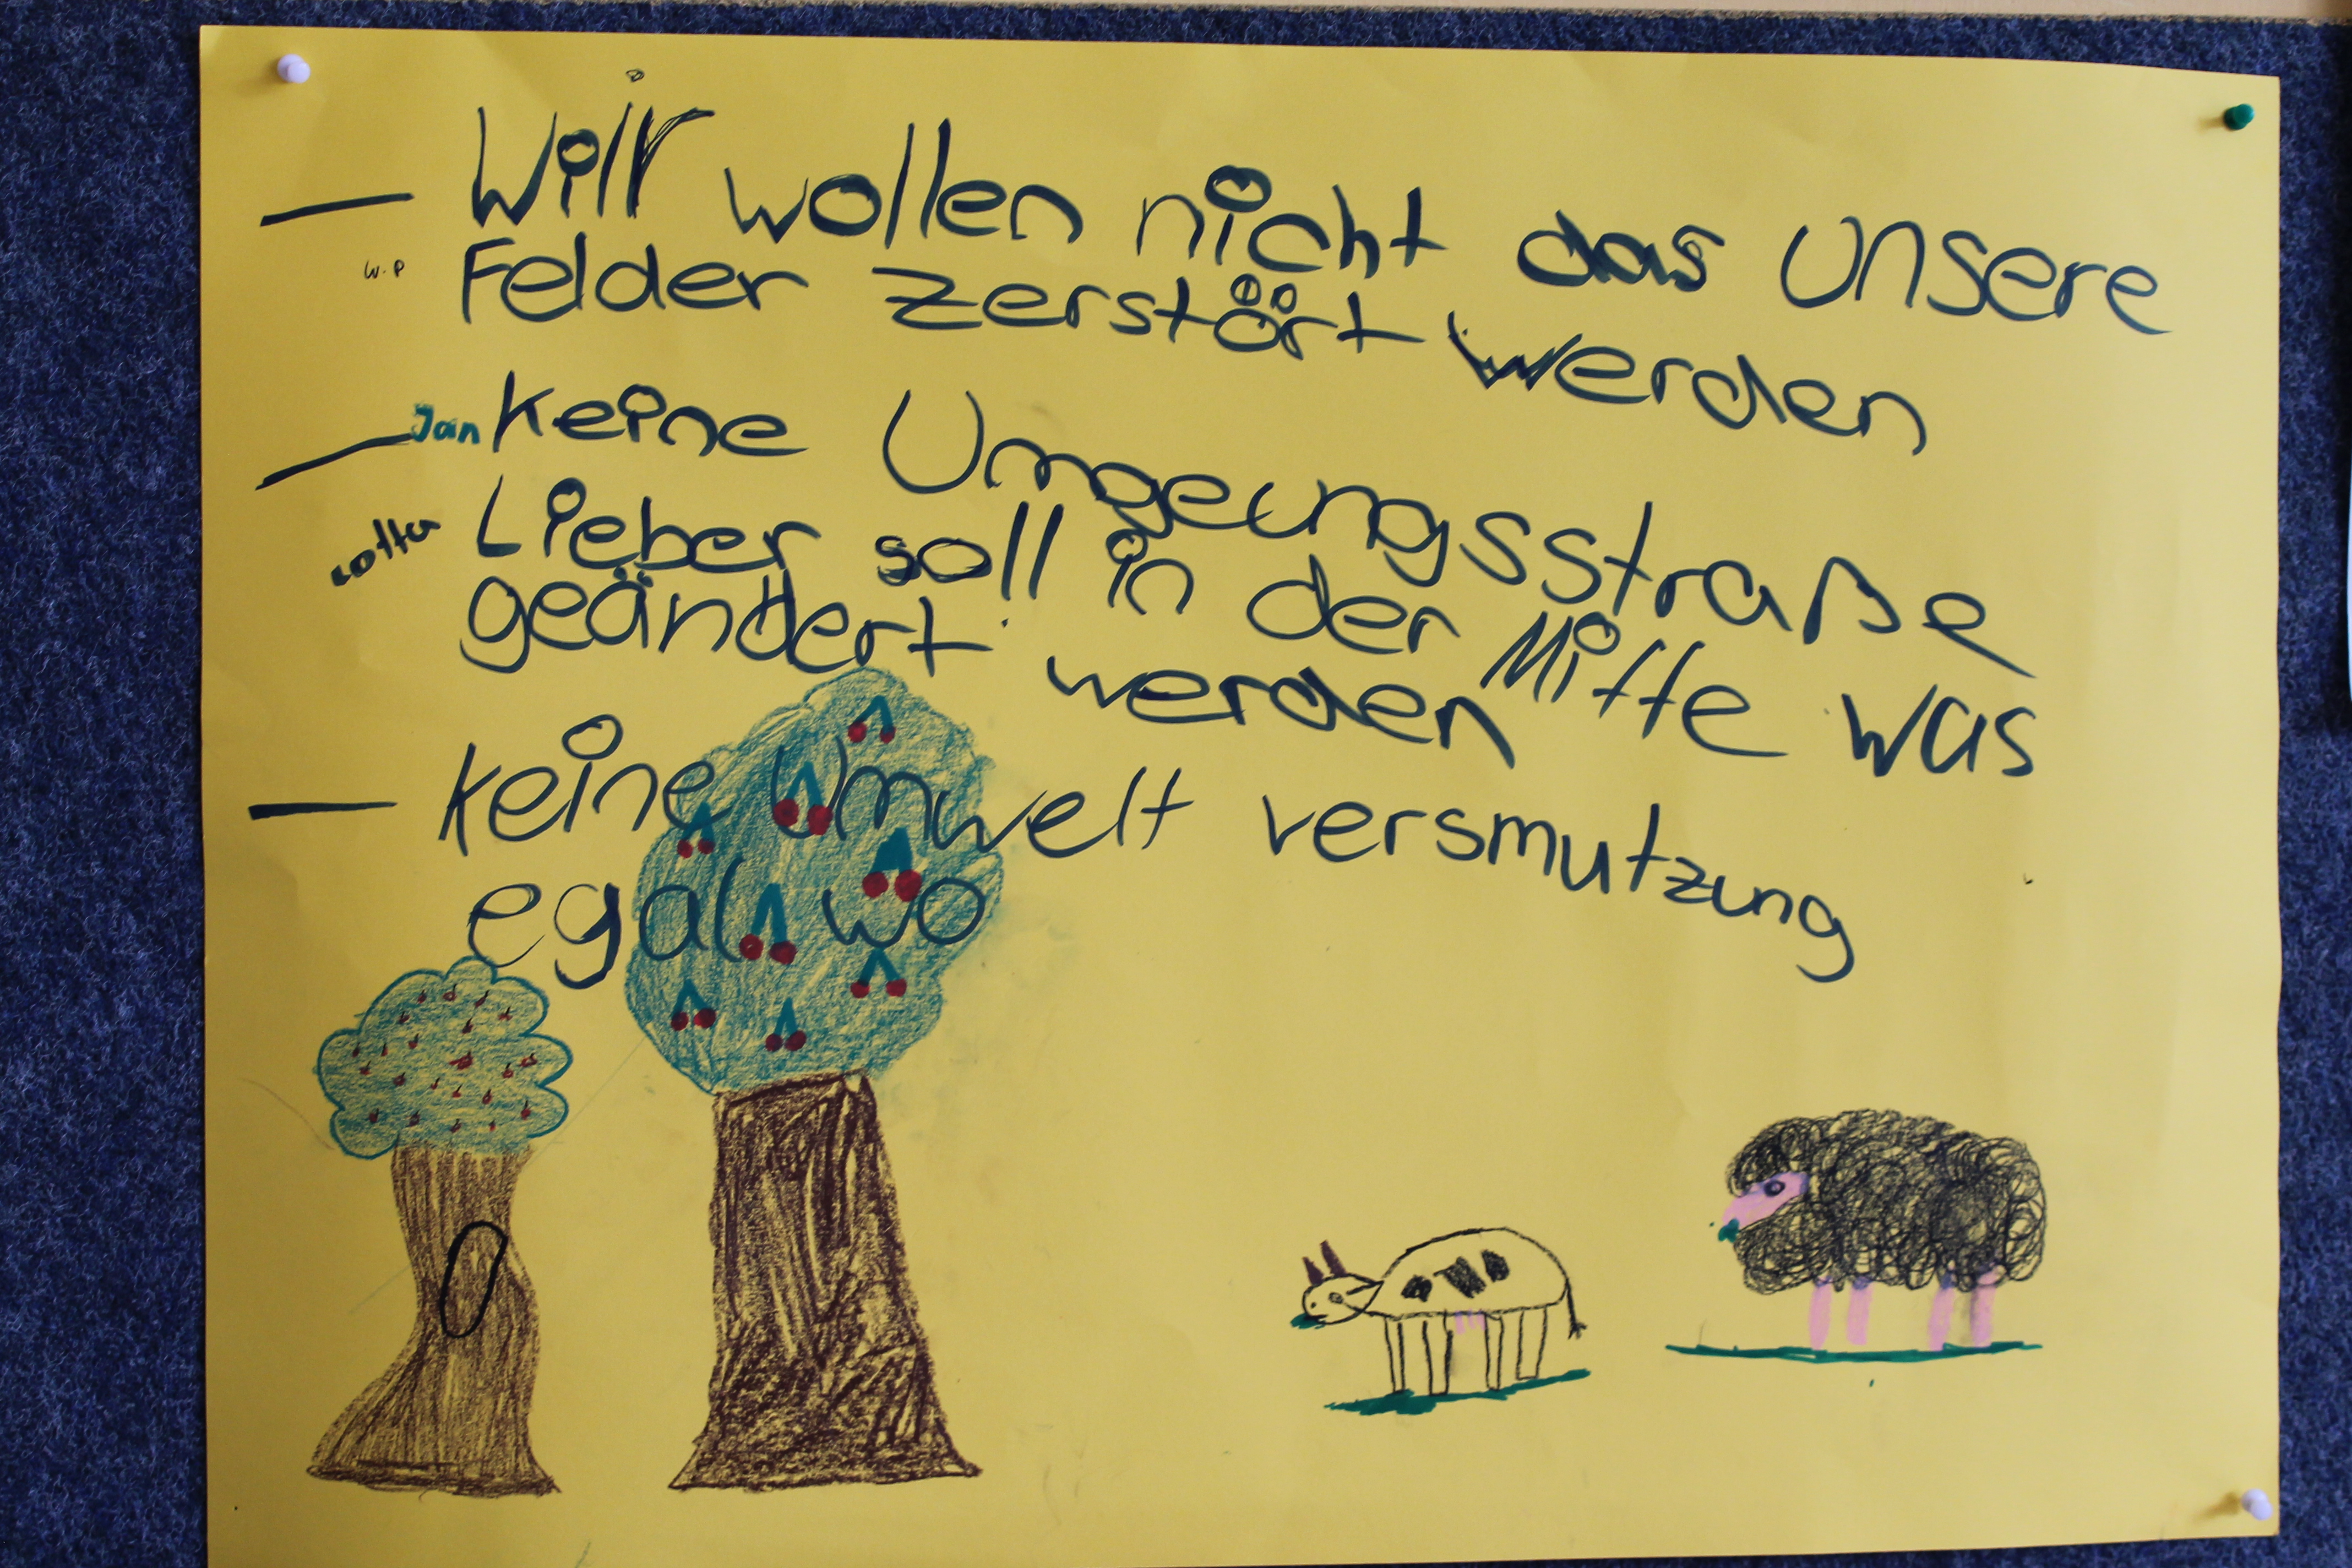 — Wiir wollen nicht das unsere
w.p Felder zerstört werden
— Jan keine Umgeungsstraße
Lotta Lieber soll in der Mitte was
geändert werden
— keine Umwelt versmutzung
egal wo